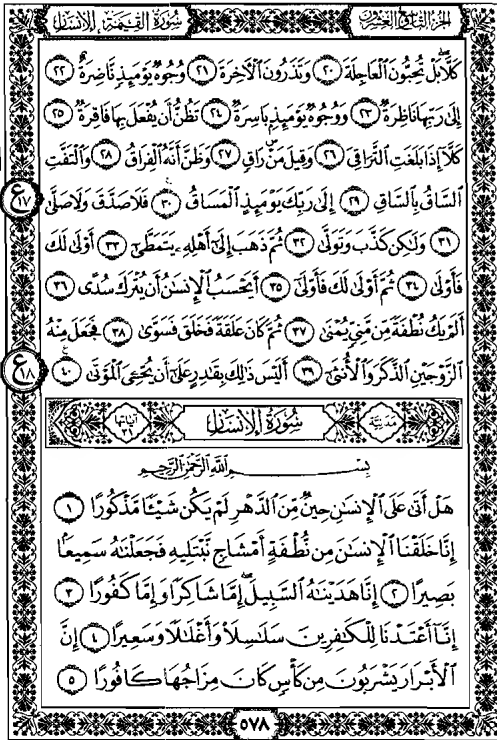 الجزء التاسع والعشرون
سورة القيمة الإنسان
كَلَّا بَلْ تُحِبُّونَ ٱلْعَاجِلَةَ ٢٠ وَتَذَرُونَ ٱلْـَٔاخِرَةَ ٢١ وُجُوهٌ يَوْمَئِذٍ نَّاضِرَةٌ ٢٢
إِلَىٰ رَبِّهَا نَاظِرَةٌ ٢٣ وَوُجُوهٌ يَوْمَئِذٍۭ بَاسِرَةٌ ٢٤ تَظُنُّ أَن يُفْعَلَ بِهَا فَاقِرَةٌ ٢٥
كَلَّآ إِذَا بَلَغَتِ ٱلتَّرَاقِيَ ٢٦ وَقِيلَ مَنْ رَاقٍ ٢٧ وَظَنَّ أَنَّهُ ٱلْفِرَاقُ ٢٨ وَٱلْتَفَّتِ
ٱلسَّاقُ بِٱلسَّاقِ ٢٩ إِلَىٰ رَبِّكَ يَوْمَئِذٍ ٱلْمَسَاقُ ٣٠ فَلَا صَدَّقَ وَلَا صَلَّىٰ
٣١ وَلَٰكِن كَذَّبَ وَتَوَلَّىٰ ٣٢ ثُمَّ ذَهَبَ إِلَىٰٓ أَهْلِهِۦ يَتَمَطَّىٰٓ ٣٣ أَوْلَىٰ لَكَ
فَأَوْلَىٰ ٣٤ ثُمَّ أَوْلَىٰ لَكَ فَأَوْلَىٰٓ ٣٥ أَيَحْسَبُ ٱلْإِنسَٰنُ أَن يُتْرَكَ سُدًى ٣٦
أَلَمْ يَكُ نُطْفَةً مِّن مَّنِىٍّ يُمْنَىٰ ٣٧ ثُمَّ كَانَ عَلَقَةً فَخَلَقَ فَسَوَّىٰ ٣٨ فَجَعَلَ مِنْهُ
ٱلزَّوْجَيْنِ ٱلذَّكَرَ وَٱلْأُنثَىٰٓ ٣٩ أَلَيْسَ ذَٰلِكَ بِقَٰدِرٍ عَلَىٰٓ أَن يُحْـِۧىَ ٱلْمَوْتَىٰ ٤٠
ع ١٧
ع ١٨
مدنية سورة الإنسان آياتها ٣١
بِسْمِ ٱللَّهِ ٱلرَّحْمَٰنِ ٱلرَّحِيمِ
هَلْ أَتَىٰ عَلَى ٱلْإِنسَٰنِ حِينٌ مِّنَ ٱلدَّهْرِ لَمْ يَكُن شَيْـًٔا مَّذْكُورًا ١
إِنَّا خَلَقْنَا ٱلْإِنسَٰنَ مِن نُّطْفَةٍ أَمْشَاجٍ نَّبْتَلِيهِ فَجَعَلْنَٰهُ سَمِيعًۢا
بَصِيرًا ٢ إِنَّا هَدَيْنَٰهُ ٱلسَّبِيلَ إِمَّا شَاكِرًا وَإِمَّا كَفُورًا ٣
إِنَّآ أَعْتَدْنَا لِلْكَٰفِرِينَ سَلَٰسِلَا۟ وَأَغْلَٰلًا وَسَعِيرًا ٤ إِنَّ
ٱلْأَبْرَارَ يَشْرَبُونَ مِن كَأْسٍ كَانَ مِزَاجُهَا كَافُورًا ٥
٥٧٨